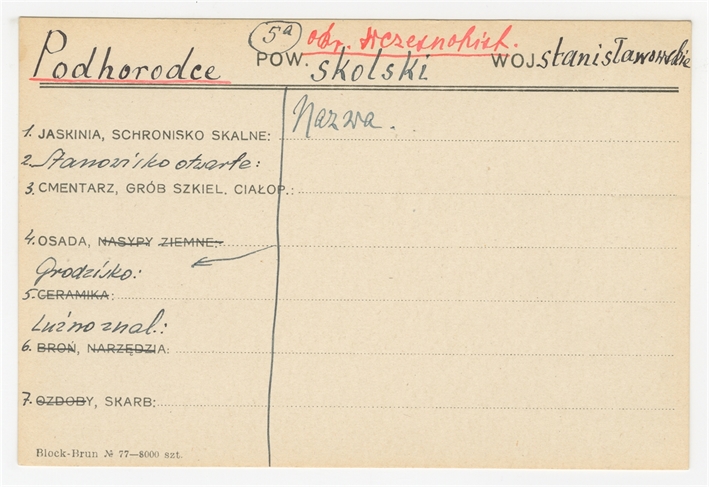 5a okr. wczesnohist.
Podhorodce POW. skolski WOJ. stanisławowskie
Nazwa.
1. JASKINIA, SCHRONISKO SKALNE:
2. Stanowisko otwarte:
3. CMENTARZ, GRÓB SZKIEL. CIAŁOP.:
4. OSADA, NASYPY ZIEMNE:
Grodzisko:
5. CERAMIKA:
Luźno znal.:
6. BROŃ, NARZĘDZIA:
7. OZDOBY, SKARB:
Block-Brun № 77—8000 szt.